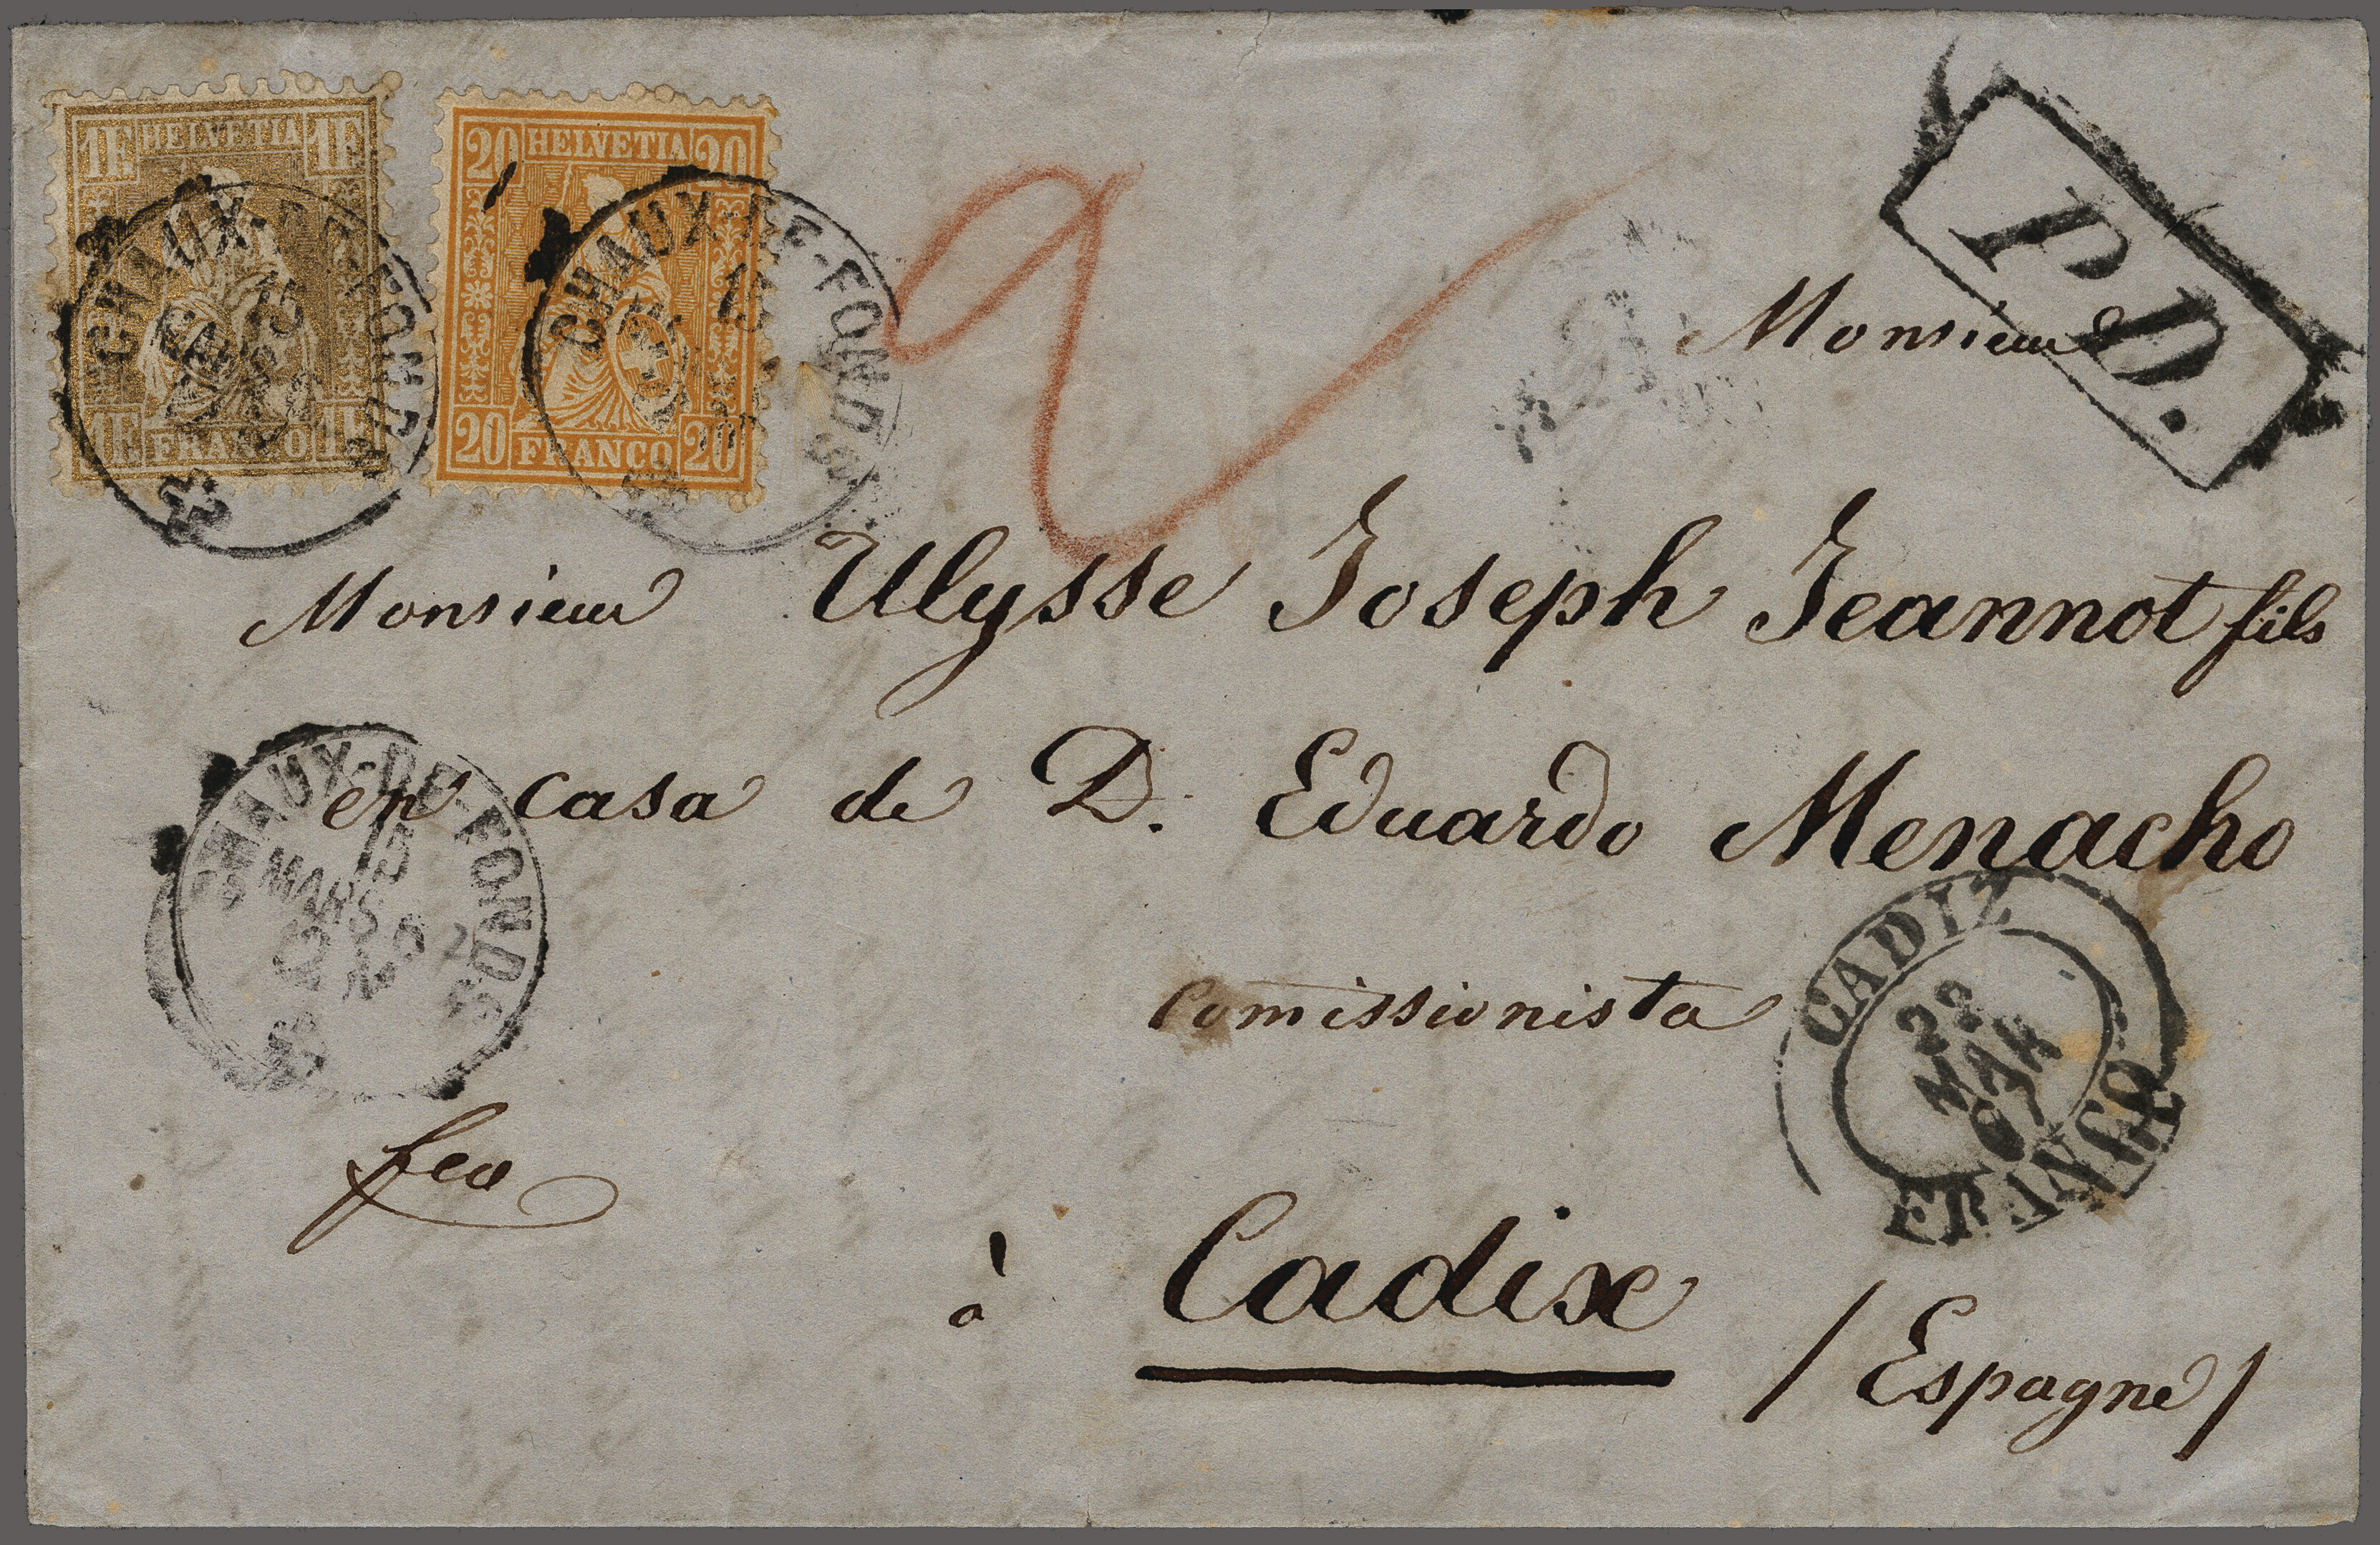 1F HELVETIA 1F
1F FRANCO 1F
20 HELVETIA 20
20 FRANCO 20
CHAUX-DE-FONDS
CHAUX-DE-FONDS
15
2
P.D.
Monsieur
Monsieur Ulysse Joseph Jeannot fils
en casa de D. Eduardo Menacho
CHAUX-DE-FONDS
15
MARS
Comissionista
CADIZ
22
MAR
67
FRANCO
fco
à Cadix
/Espagne/